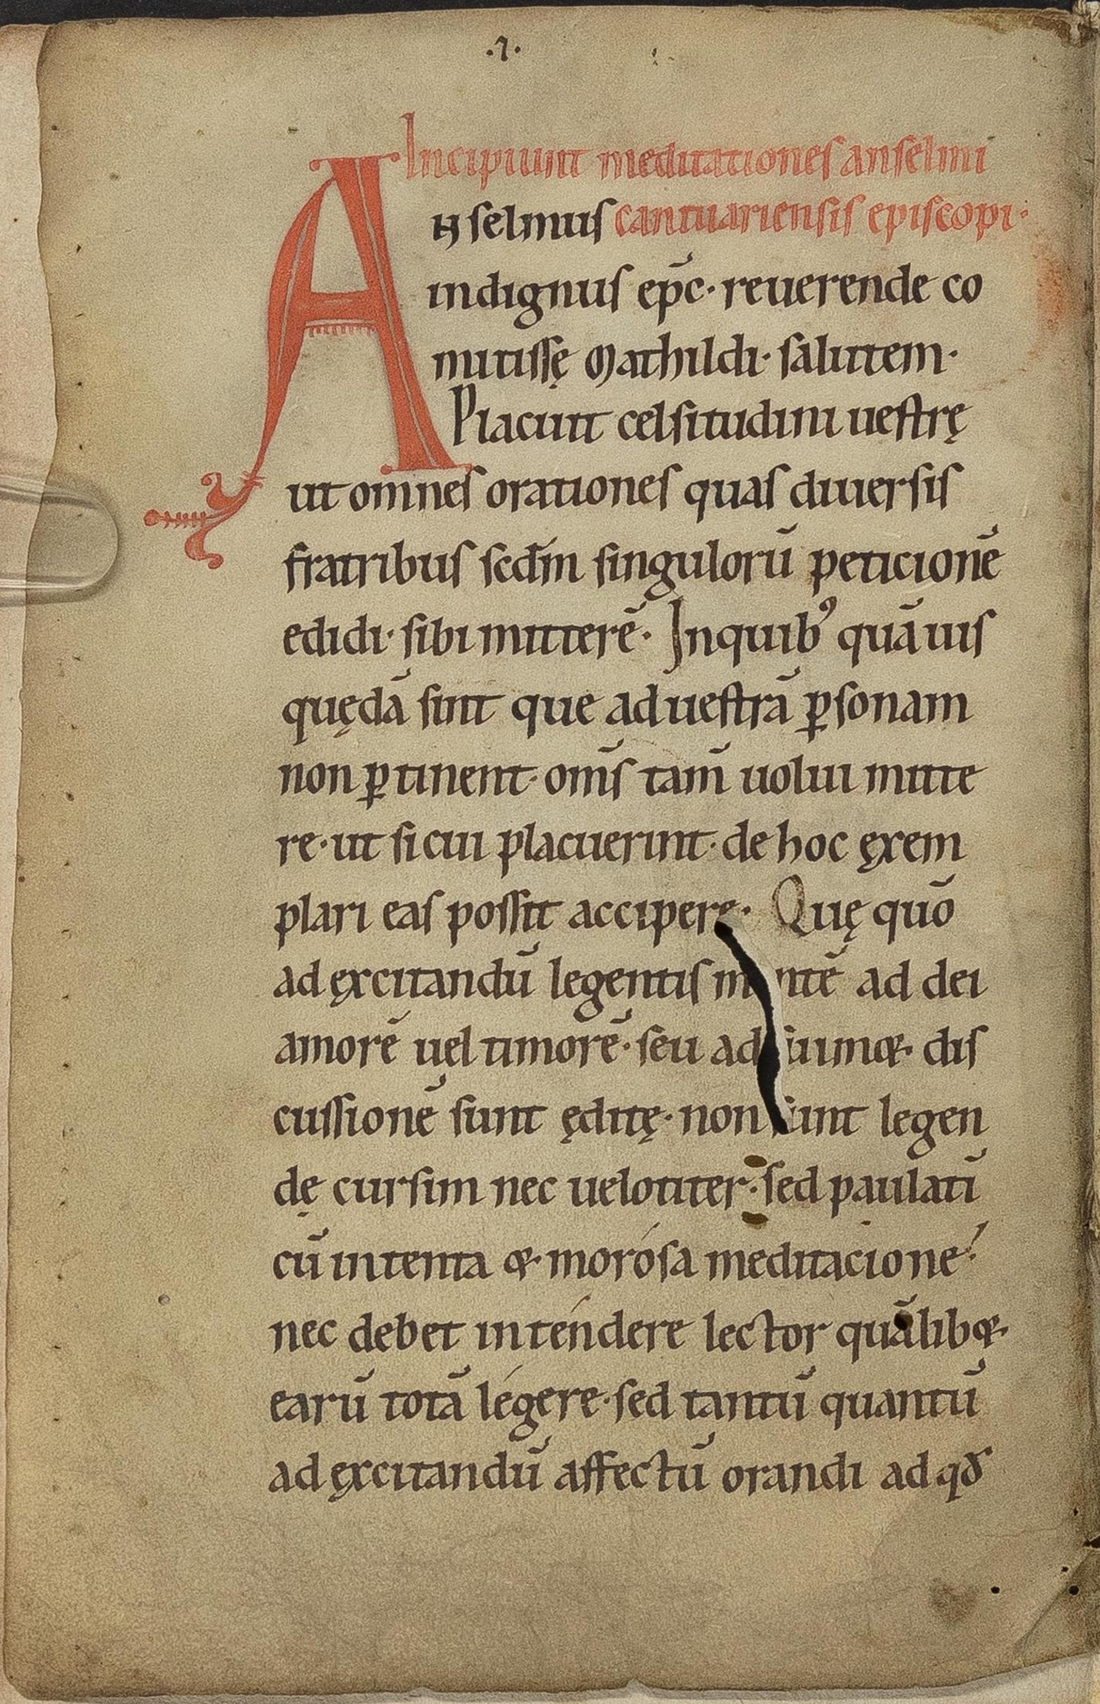 ·7·
Incipiunt meditationes anselmi
Anselmus cantuariensis episcopi·
indignus ep̄c· reuerende co
mitissę Mathildi· salutem·
Placuit celsitudini uestrę
ut omnes orationes quas diuersis
fratribus scd̄m singulorū peticionē
edidi· sibi mitterē· Inquibꝰ quāuis
quędā sint que ad uestrā ꝑsonam
non ꝑtinent· om̄s tam̄ uolui mitte
re· ut si cui placuerint· de hoc ęxem
plari eas possit accipere· Quę quō
ad ęxcitandū legentis mentē ad dei
amorē uel timorē· seu ad suimꝙ dis
cussionē sunt ęditę· non sunt legen
dę cursim nec uelociter· sed paulatī
cū intenta & morósa meditacione·
nec debet inténdere lector quālib&
earū totā légere· sed tantū quantū
ad ęxcitandū affectū orandi ad qđ